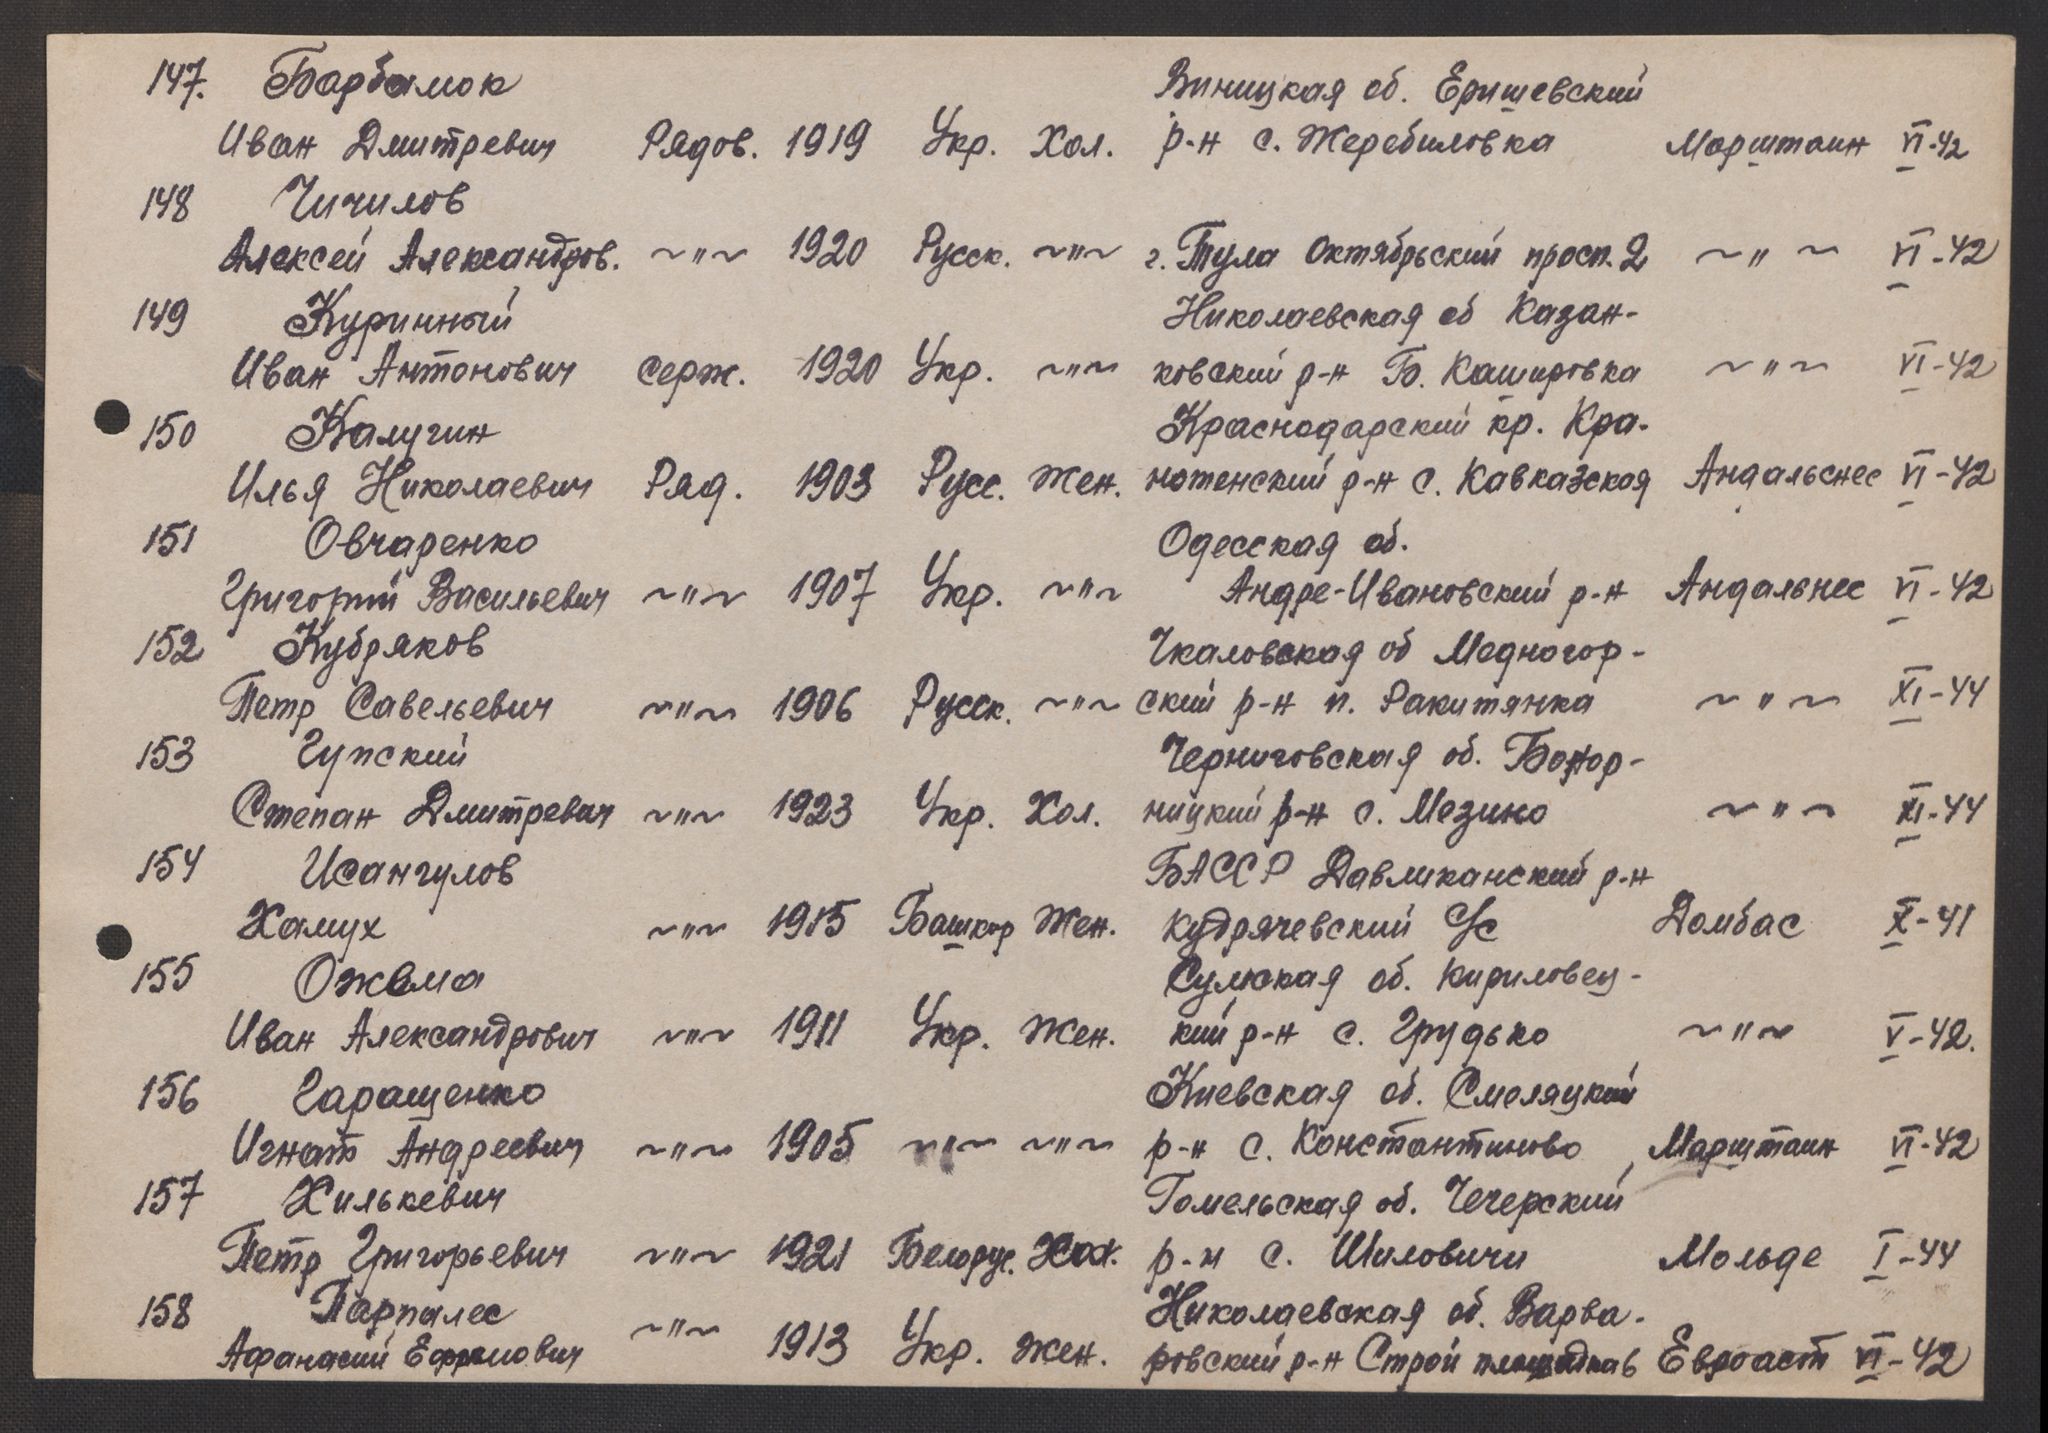 147. Барбамок Виницкая об. Еришевский
Иван Дмитревич Рядов. 1919 Укр. Хол. р-н с. Жеребиловка Марштаин VI-42
148 Чичилов
Алексей Александров. ~"~ 1920 Русск. ~"~ г. Тула Октябрьский просп. 2 ~"~ VI-42
149 Куринный Николаевская об Казан-
Иван Антонович серж. 1920 Укр. ~"~ ковский р-н Б. Кашировка ~"~ VI-42
150 Калугин Краснодарский кр. Кра-
Илья Николаевич Ряд. 1903 Русс. Жен. нотенский р-н с. Кавказская Андальснес VI-42
151 Овчаренко Одесская об.
Григорий Васильевич ~"~ 1907 Укр. ~"~ Андре-Ивановский р-н Андальнес VI-42
152 Кубряков Чкаловская об Медногор-
Петр Савельевич ~"~ 1906 Русск. ~"~ ский р-н п. Ракитянка ~"~ XI-44
153 Гупский Черниговская об.
Степан Дмитревич ~"~ 1923 Укр. Хол. ницкий р-н с. Мезино ~"~ XI-44
154 Исангулов БАССР Давликанский р-н
Хамух ~"~ 1915 Башкир Жен. Кудрячевский с/с Домбас X-41
155 Ожема Сумская об. Кириловец-
Иван Александрович ~"~ 1911 Укр. Жен. кий р-н с. Грудько ~"~ V-42.
156 Гаращенко Киевская об. Смеляцкий
Игнат Андреевич ~"~ 1905 ~"~ ~"~ р-н с. Константиново Марштаин VI-42
157 Хилькевич Гомельская об. Чечерский
Петр Григорьевич ~"~ 1921 Белорус. Хол. р-н с. Шиловичи Мольде I-44
158 Парпалес Николаевская об. Варва-
Афанасий Ефремович ~"~ 1913 Укр. Жен. ровский р-н Строй площадка 6 VI-42